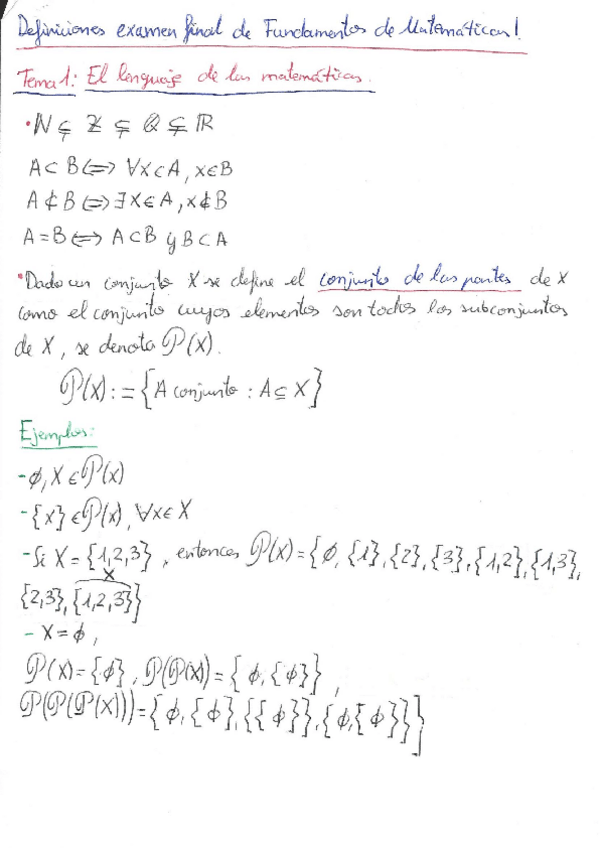 Definiciones examen final de Fundamentos de Matemáticas!
Tema 1: El lenguaje de las matemáticas.
• ℕ ⊊ ℤ ⊊ ℚ ⊊ ℝ
A ⊂ B ⟺ ∀x ⊂ A, x ∈ B
A ⊄ B ⟺ ∃x ∈ A, x ∉ B
A = B ⟺ A ⊂ B y B ⊂ A
• Dado un conjunto X se define el conjunto de las partes de X
como el conjunto cuyos elementos son todos los subconjuntos
de X, se denota P(X).
P(X) := {A conjunto : A ⊆ X}
Ejemplos:
- ∅, X ∈ P(X)
- {x} ∈ P(X), ∀x ∈ X
- Si X = {1,2,3}, entonces P(X) = {∅, {1}, {2}, {3}, {1,2}, {1,3},
X
{2,3}, {1,2,3}}
- X = ∅,
P(X) = {∅}, P(P(X)) = {∅, {∅}},
P(P(P(X))) = {∅, {∅}, {{∅}}, {∅, {∅}}}